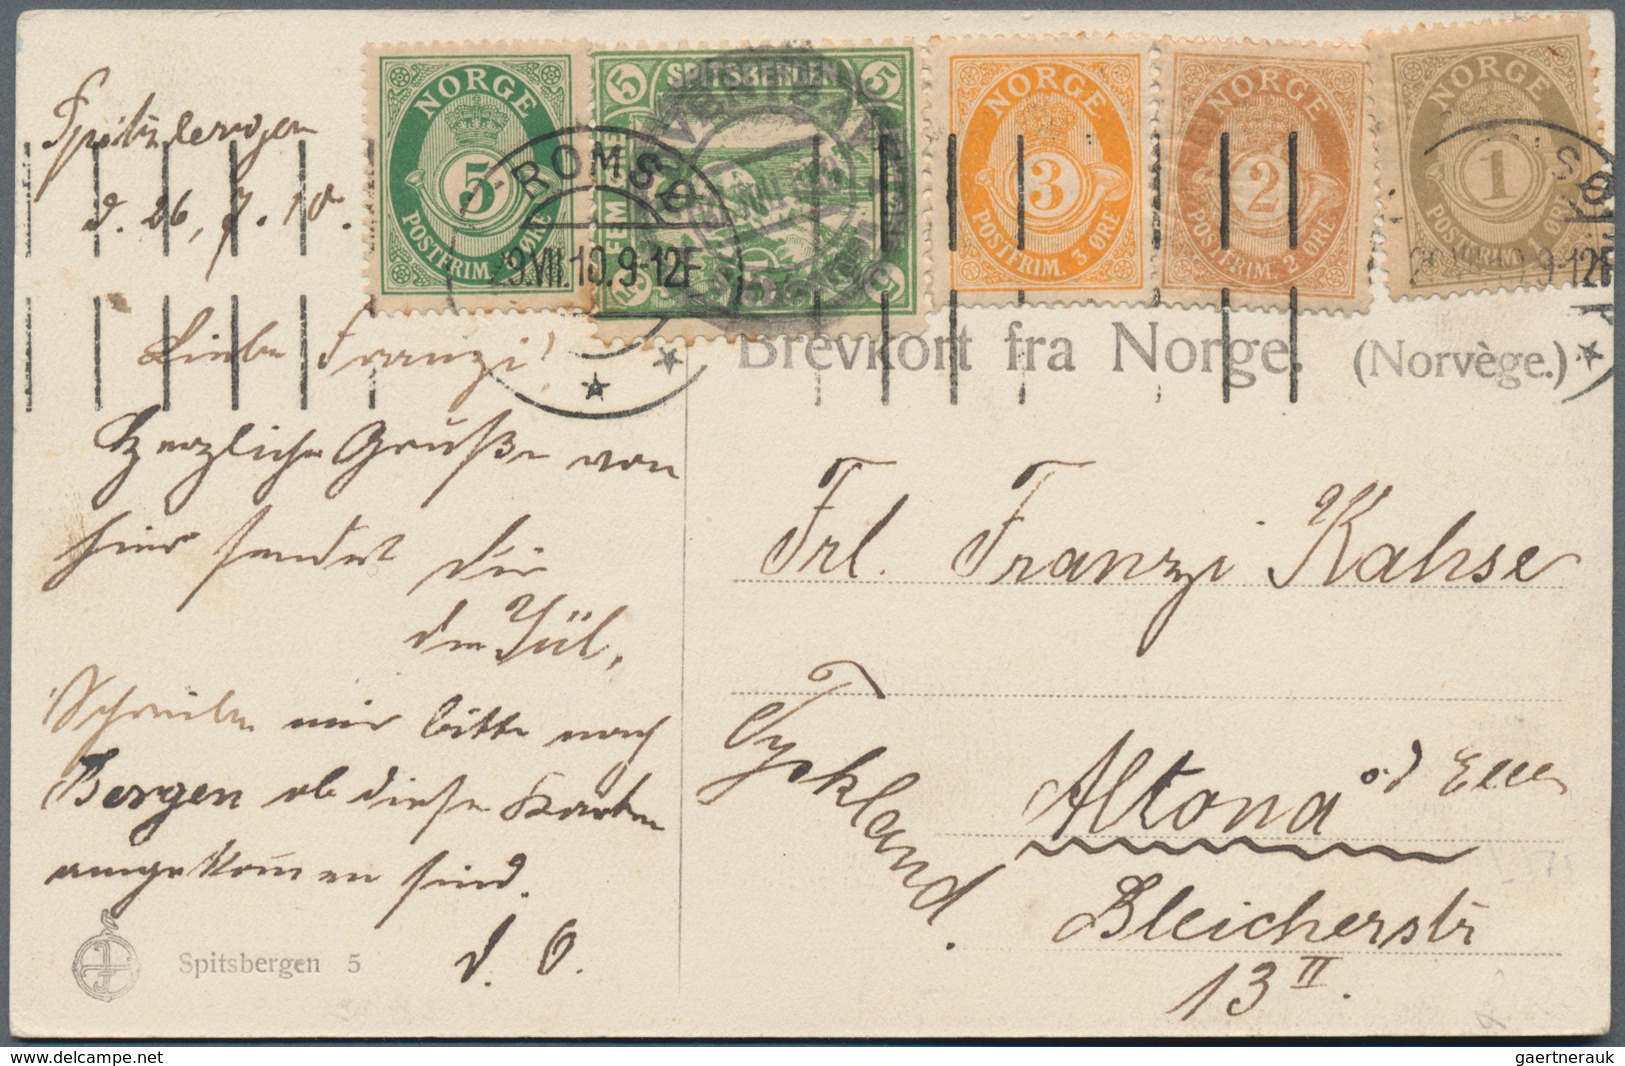 Spitzbergen
d. 26, 7. 10.
Liebe Franzi!
Herzliche Grüße von
hier sendet dir
dein
Schreibe mir bitte nach
Bergen ob diese Karten
angekom̄en sind.
d. O.
Spitsbergen 5
NORGE
5
POSTFRIM. 5 ØRE
5 SPITSBERGEN 5
FEM
5 5
NORGE
3
POSTFRIM. 3 ØRE
NORGE
2
POSTFRIM. 2 ØRE
NORGE
1
POSTFRIM. 1 ØRE
TROMSØ
29.VII.10.9-12F
SØ
9-12F
Brevkort fra Norge. (Norvège.)
Frl. Franzi Kahse
Tyskland.
Altona
Bleicherstr
13 II.
delcampe.net
gaertnerauk